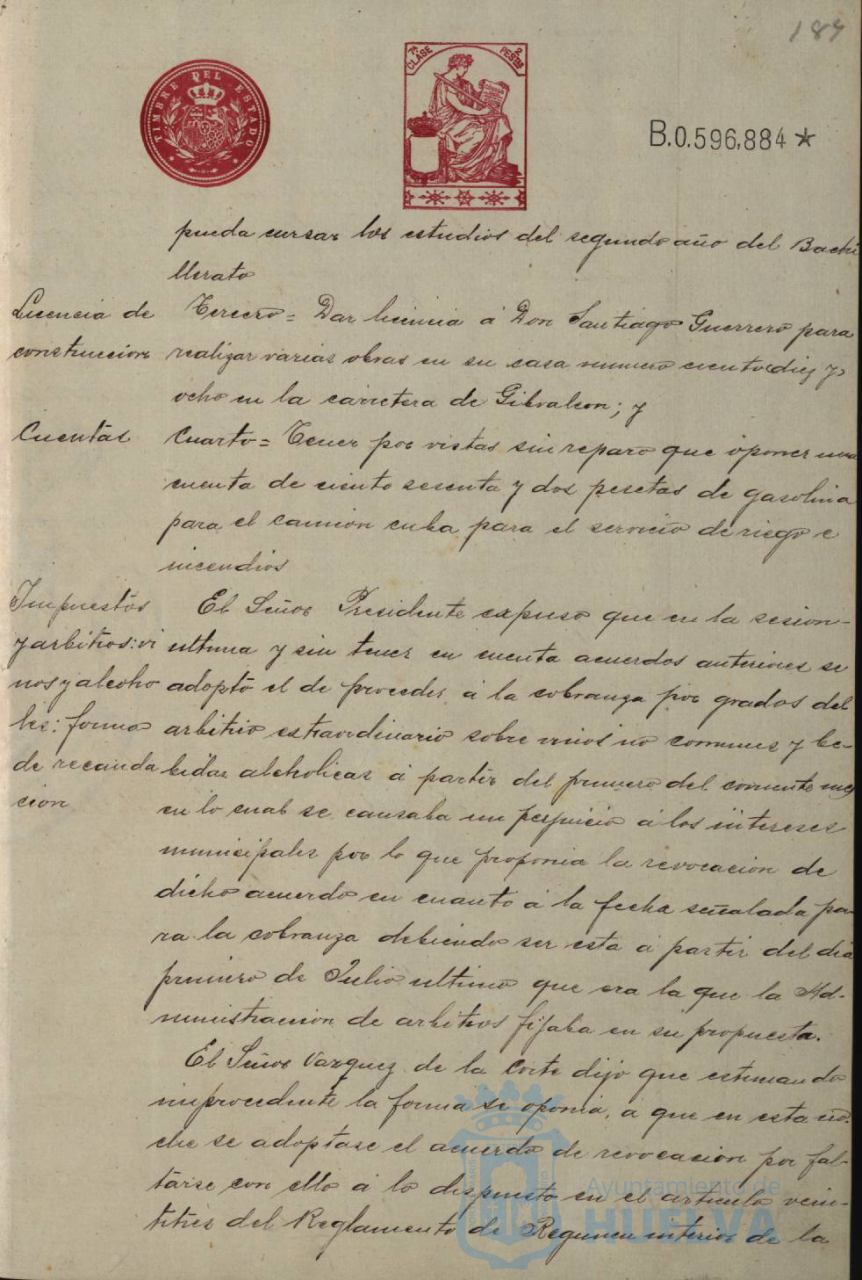 184
TIMBRE DEL ESTADO
7ª CLASE
2 PESETAS
B.0.596,884 *
pueda cursar los estudios del segundo año del Bachi
llerato
Licencia de
construccion
Tercero = Dar licencia á Don Santiago Guerrero para
realizar varias obras en su casa numero ciento diez y
ocho en la carretera de Gibraleon; y
Cuentas
Cuarto = Tener por vistas sin reparo que oponer una
cuenta de ciento sesenta y dos pesetas de gasolina
para el camión cuba para el servicio de riego e
incendios
Impuestos
y arbitrios: vi
nos y alcoho
les: forma
de recauda
cion
El Señor Presidente expuso que en la sesion
ultima y sin tener en cuenta acuerdos anteriores se
adoptó el de proceder á la cobranza por grados del
arbitrio extraordinario sobre vinos no comunes y be-
bidas alcoholicas á partir del primero del corriente mes
en lo cual se causaba un perjuicio á los intereses
municipales por lo que proponia la revocacion de
dicho acuerdo en cuanto á la fecha señalada pa-
ra la cobranza debiendo ser esta á partir del dia
primero de Julio ultimo que era la que la Ad-
ministracion de arbitrios fijaba en su propuesta.
El Señor Vazquez de la Corte dijo que estimando
improcedente la forma se oponia, a que en esta no-
che se adoptase el acuerdo de revocacion por fal-
tarse con ello á lo dispuesto en el articulo vein-
titres del Reglamento de Regimen interior de la
Ayuntamiento de
HUELVA